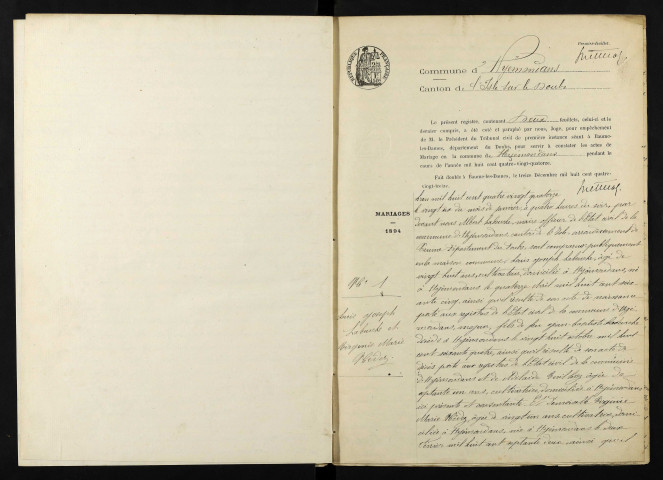 RÉPUBLIQUE FRANÇAISE
Premier feuillet
Commune d'Hyémondans
Canton de L'Isle sur le Doubs
Le présent registre, contenant feuillets, celui-ci et le
dernier compris, a été coté et paraphé par nous, Juge, pour empêchement
de M. le Président du Tribunal civil de première instance séant à Baume-
les-Dames, département du Doubs, pour servir à constater les actes de
Mariage en la commune de Hyémondans pendant le
cours de l'année mil huit cent quatre-vingt-quatorze.
Fait double à Baume-les-Dames, le treize Décembre mil huit cent quatre-
vingt-treize.
MARIAGES
1894
N° 1
Joseph
Labache et
Marie
L'an mil huit cent quatre vingt quatorze
le vingt du mois de janvier à quatre heures du soir par
devant nous Albert Labache, maire officier de l'état civil de la
commune d'Hyémondans canton de L'Isle arrondissement de
Baume Département du Doubs, sont comparus publiquement
en la maison commune, Joseph Labache, âgé de
vingt huit ans, cultivateur, domicilié à Hyémondans, né
à Hyémondans le quatorze mil huit cent soix
ante cinq, ainsi qu'il résulte de son acte de naissance
porté aux registres de l'état civil de la commune d'Hyé
mondans, majeur, fils de feu Jean Labache
décédé à Hyémondans le vingt huit octobre mil huit
cent soixante ainsi qu'il résulte de son acte de
décès porté aux registres de l'état civil de la commune
d'Hyémondans et de Adélaïde âgée de
septante un ans, cultivatrice, domiciliée à Hyémondans
ici présente et consentante. Et Demoiselle
Marie âgée de vingt un ans cultivatrice, domi
ciliée à Hyémondans, née à Hyémondans le deux
Février mil huit cent septante deux ainsi qu'il